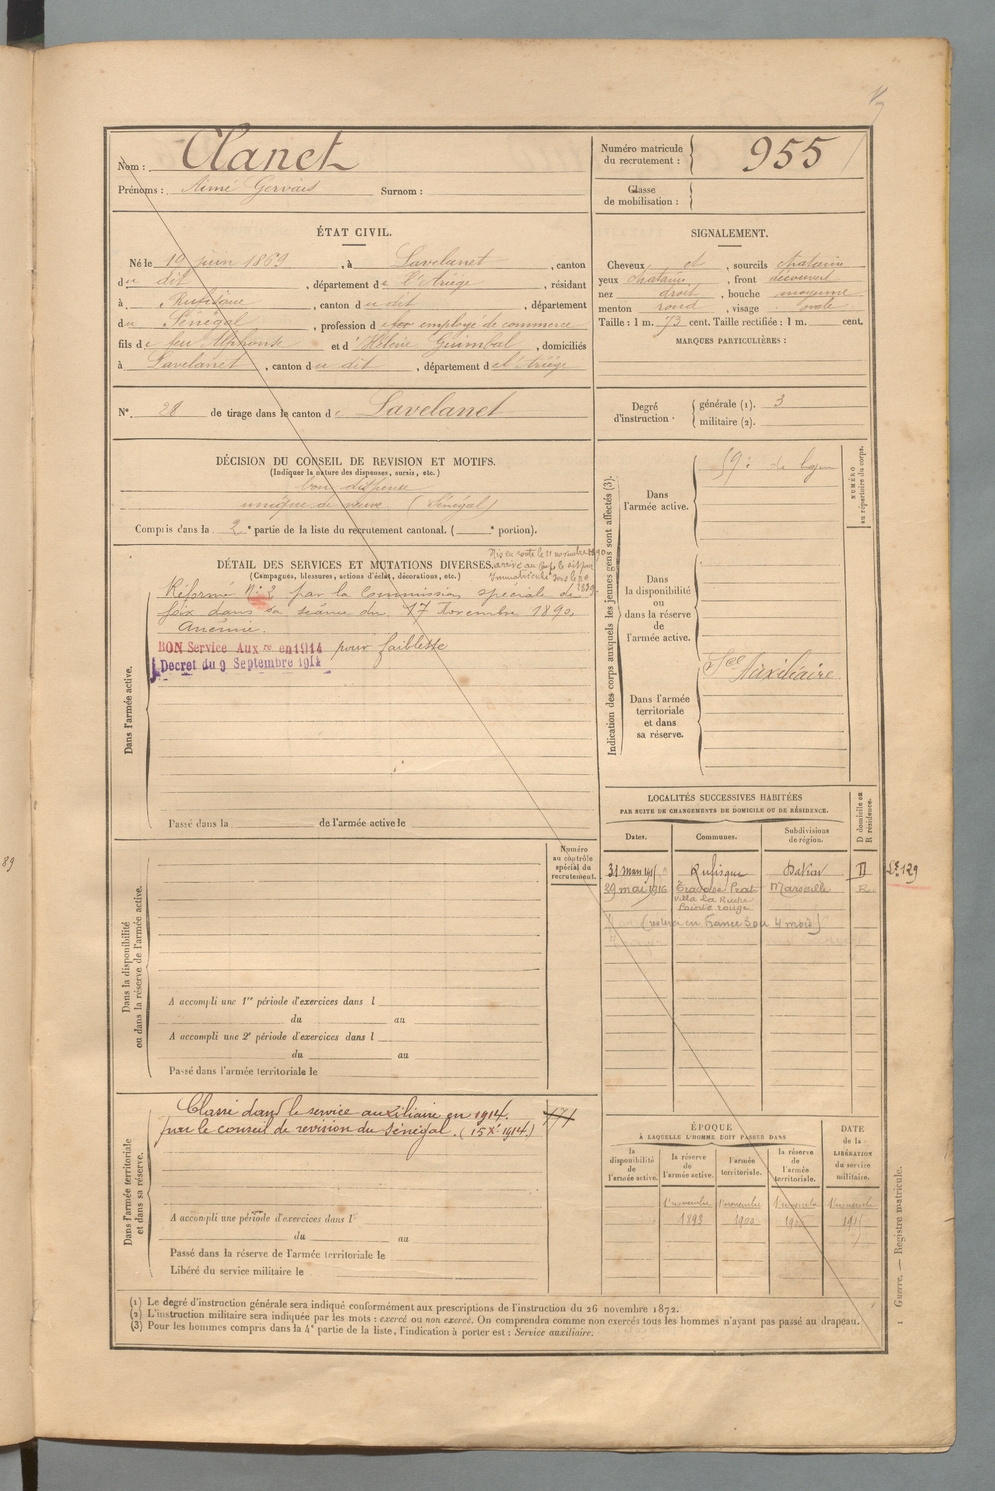 Nom : Clanet
Prénoms : Aimé Gervais Surnom :
Numéro matricule
du recrutement : 955
Classe
de mobilisation :
ÉTAT CIVIL.
Né le 19 juin 1869, à Lavelanet, canton
du dit, département de l'Ariège, résidant
à Rufisque, canton du dit, département
du Sénégal, profession d employé de commerce
fils de feu Alphonse et d'Hélène Guimbal, domiciliés
à Lavelanet, canton du dit, département de l'Ariège
N°. 28 de tirage dans le canton de Lavelanet
DÉCISION DU CONSEIL DE REVISION ET MOTIFS.
(Indiquer la nature des dispenses, sursis, etc.)
bon dispensé
unique de veuve (Sénégal)
Compris dans la 2e partie de la liste du recrutement cantonal. ( e portion).
SIGNALEMENT.
Cheveux et, sourcils chatain
yeux chatain, front découvert
nez droit, bouche moyenne
menton rond, visage ovale
Taille : 1 m. 73 cent. Taille rectifiée : 1 m. cent.
MARQUES PARTICULIÈRES :
Degré
d'instruction.
générale (1). 3
militaire (2).
DÉTAIL DES SERVICES ET MUTATIONS DIVERSES.
(Campagnes, blessures, actions d'éclat, décorations, etc.)
Mis en route le 11 novembre 1890
arrivé au corps le dit jour
Immatriculé sous le no
Dans l'armée active.
Réformé No 2 par la Commission spéciale de
foix dans sa séance du 17 novembre 1890.
Anémie.
BON Service Auxre en 1914 pour faiblesse
Decret du 9 Septembre 1914
Passé dans la de l'armée active le
Indication des corps auxquels les jeunes gens sont affectés (3).
NUMÉRO
au répertoire du corps.
Dans
l'armée active.
59e de ligne
Dans
la disponibilité
ou
dans la réserve
de
l'armée active.
Dans l'armée
territoriale
et dans
sa réserve.
Sce Auxiliaire
LOCALITÉS SUCCESSIVES HABITÉES
PAR SUITE DE CHANGEMENTS DE DOMICILE OU DE RÉSIDENCE.
Dates. Communes. Subdivisions
de région.
D domicile ou
R résidence.
31 mars Rufisque Dakar D
29 mai 1916 Traverse Prat Marseille R.
Villa La Ruche
Pointe rouge
(restera en France 3 ou 4 mois)
129
89
Dans la disponibilité
ou dans la réserve de l'armée active.
Numéro
au contrôle
spécial du
recrutement.
A accompli une 1re période d'exercices dans l
du au
A accompli une 2e période d'exercices dans l
du au
Passé dans l'armée territoriale le
Dans l'armée territoriale
et dans sa réserve.
Classé dans le service auxiliaire en 1914.
par le conseil de revision du Sénégal. (15 Xe 1914.)
A accompli une période d'exercices dans l
du au
Passé dans la réserve de l'armée territoriale le
Libéré du service militaire le
ÉPOQUE
À LAQUELLE L'HOMME DOIT PASSER DANS
DATE
de la
LIBÉRATION
du service
militaire.
la
disponibilité
de
l'armée active.
la réserve
de
l'armée active.
l'armée
territoriale.
la réserve
de
l'armée
territoriale.
1er novembre 1er novembre 1er novembre 1er novembre
1893 1900
(1) Le degré d'instruction générale sera indiqué conformément aux prescriptions de l'instruction du 26 novembre 1872.
(2) L'instruction militaire sera indiquée par les mots : exercé ou non exercé. On comprendra comme non exercés tous les hommes n'ayant pas passé au drapeau.
(3) Pour les hommes compris dans la 4e partie de la liste, l'indication à porter est : Service auxiliaire.
1 Guerre. — Registre matricule.